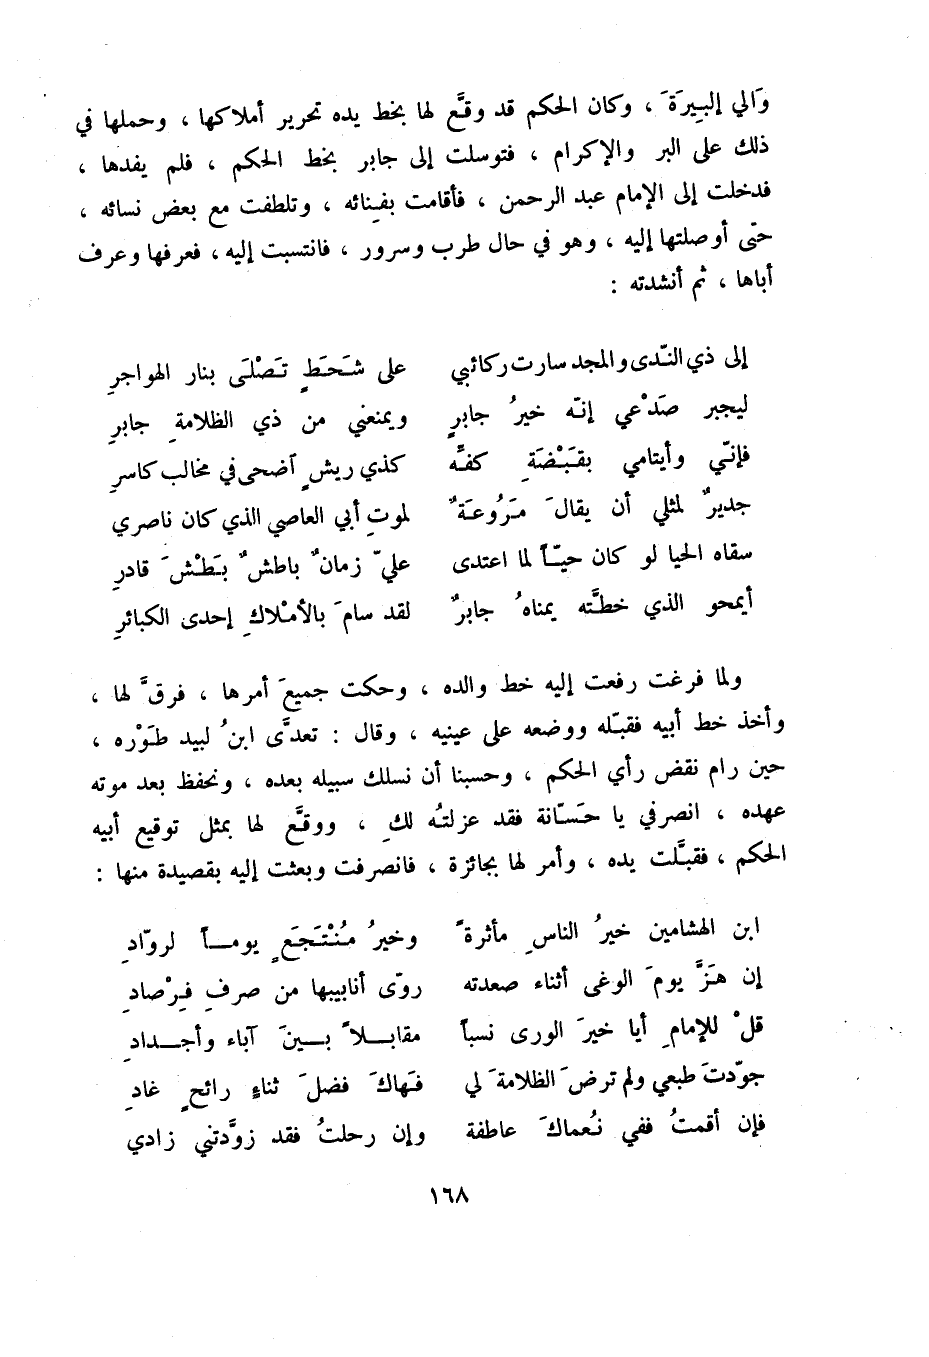 وَالي إلبِيرَةَ ، وكان الحكم قد وقَّع لها بخط يده تحرير أملاكها ، وحملها في
ذلك على البر والإكرام ، فتوسلت إلى جابر بخط الحكم ، فلم يفدها ،
فدخلت إلى الإمام عبد الرحمن ، فأقامت بفِنائه ، وتلطفت مع بعض نسائه ،
حتى أوصلتها إليه ، وهو في حال طرب وسرور ، فانتسبت إليه ، فعرفها وعرف
أباها ، ثم أنشدته :
إلى ذي النّدى والمجد سارت ركائبي على شَحَطٍ تَصْلَى بنار الهواجرِ
ليجبر صَدْعي إنّه خيرُ جابرٍ ويمنعني من ذي الظلامةِ جابرِ
فإنّي وأيتامي بقَبْضَةِ كفّه كذي ريشٍ أضحى في مخالب كاسرِ
جديرٌ لمثلي أن يقالَ مَرُوعَةٌ لموتِ أبي العاصي الذي كان ناصري
سقاه الحيا لو كان حيّاً لما اعتدى عليّ زمانٌ باطشٌ بَطْشَ قادرِ
أيمحو الذي خطَّته يمناهُ جابرٌ لقد سامَ بالأمْلاكِ إحدى الكبائرِ
ولما فرغت رفعت إليه خط والده ، وحكت جميعَ أمرها ، فرقَّ لها ،
وأخذ خط أبيه فقبّله ووضعه على عينيه ، وقال : تعدَّى ابنُ لبيد طَوْره ،
حين رام نقض رأي الحكم ، وحسبنا أن نسلك سبيله بعده ، ونحفظ بعد موته
عهده ، انصرفي يا حَسّانة فقد عزلتُه لكِ ، ووقَّع لها بمثل توقيع أبيه
الحكم ، فقبَّلت يده ، وأمر لها بجائزة ، فانصرفت وبعثت إليه بقصيدة منها :
ابن الهشامين خيرُ الناسِ مأثرةً وخيرُ مُنْتَجَعٍ يومـاً لروّادِ
إن هَزَّ يومَ الوغى أثناء صعدته روّى أنابيبها من صرفِ فِرْصادِ
قلْ للإمامِ أيا خيرَ الورى نسباً مقابـلاً بـينَ آباء وأجـدادِ
جوّدتَ طبعي ولم ترضَ الظلامةَ لي فَهاكَ فضلَ ثناءٍ رائحٍ غادِ
فإن أقمتُ ففي نُعماكَ عاطفة وإن رحلتُ فقد زوَّدتني زادي
١٦٨